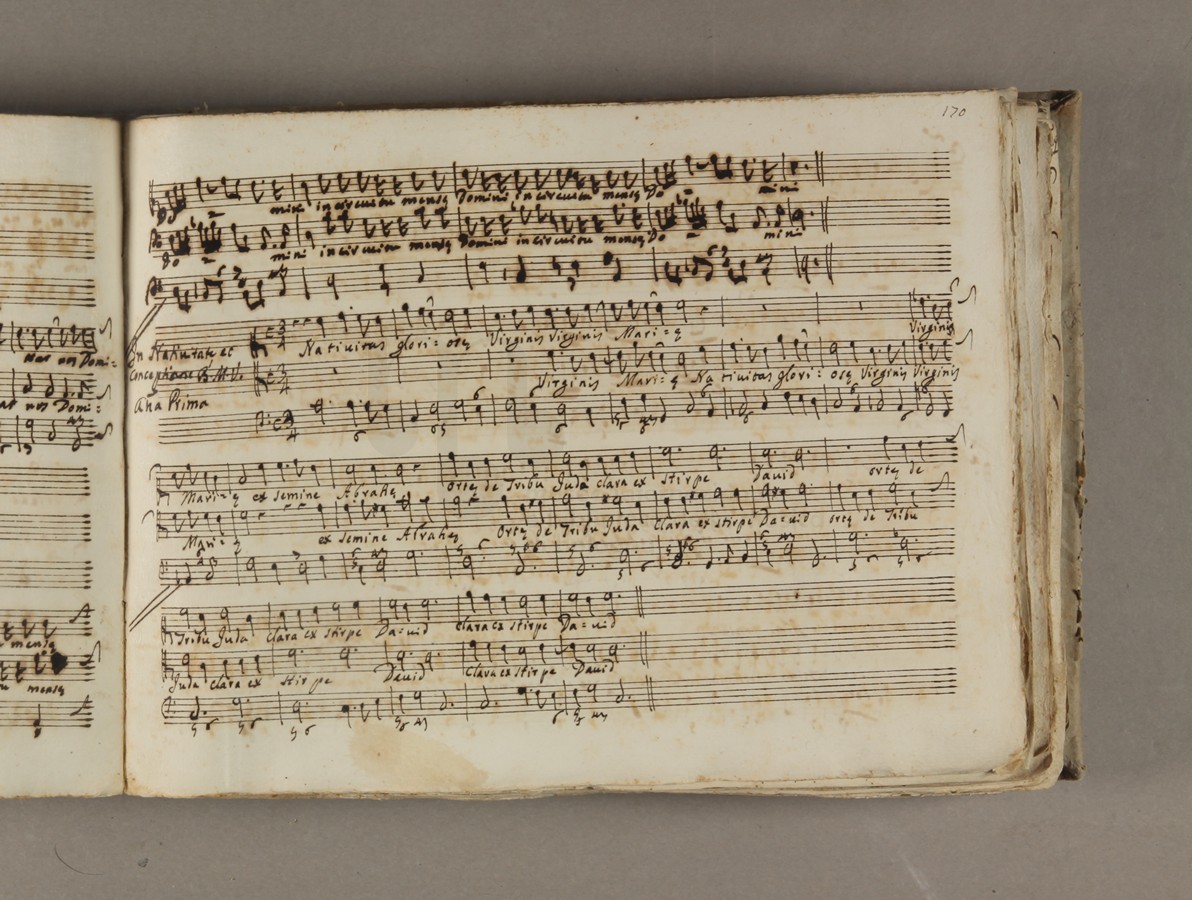 170
mini in circuitu mensę Domini in circuitu mensę Do mini
Do mini in circuitu mensę Domini in circuitu mensę Do mini
In Nativitate et
Conceptione B. M. V.
Ana Prima
Nativitas glori: osę Virginis Virginis Mari: ę Virginis
Virginis Mari: ę Na tivitas glori: osę Virginis Virginis
Mari: ę ex semine Abrahę ortę de Tribu Juda clara ex stirpe David ortę de
Mari: ę ex semine Abrahę Ortę de Tribu Juda clara ex stirpe Da=uid ortę de Tribu
Tribu Juda clara ex stirpe Da=uid clara ex stirpe Da=uid
Juda clara ex stir pe David clara ex stirpe David
nat uos Domi:
uos Domi:
mensę
mensę